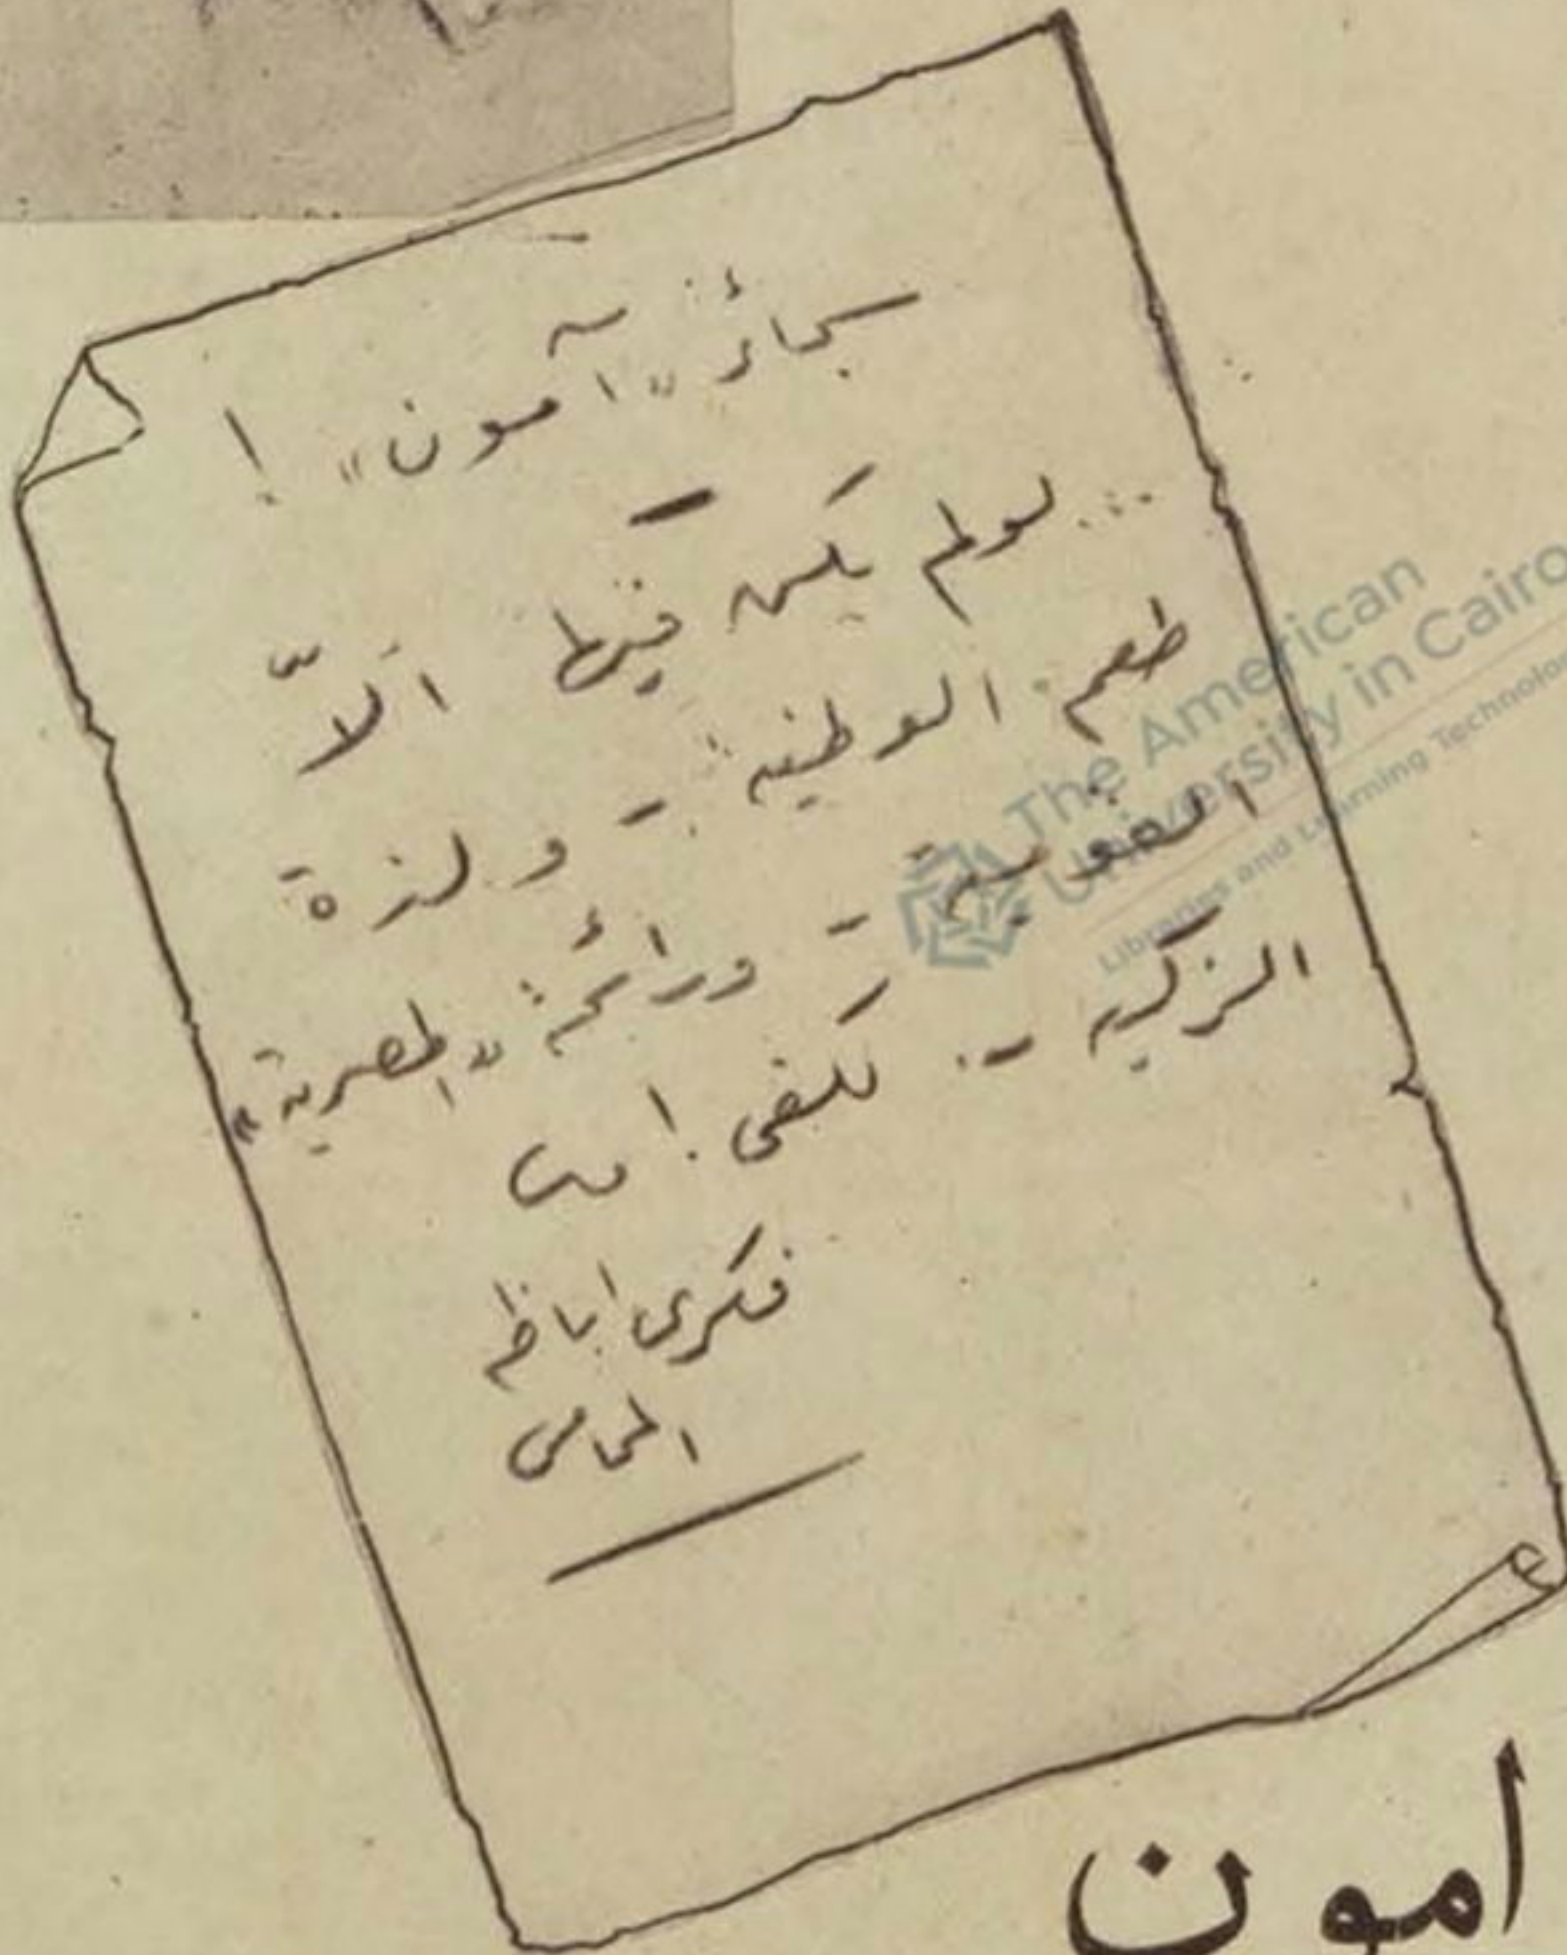 سجائر "آمون" !
... لو لم يكن فيها الاّ
طعم الوطنية - ولذة
القومية - ورائحة "المصرية"
الزكية - . لكفى !
فكرى اباظه
المحامى
امون
The American
University in Cairo
Libraries and Learning Technolo